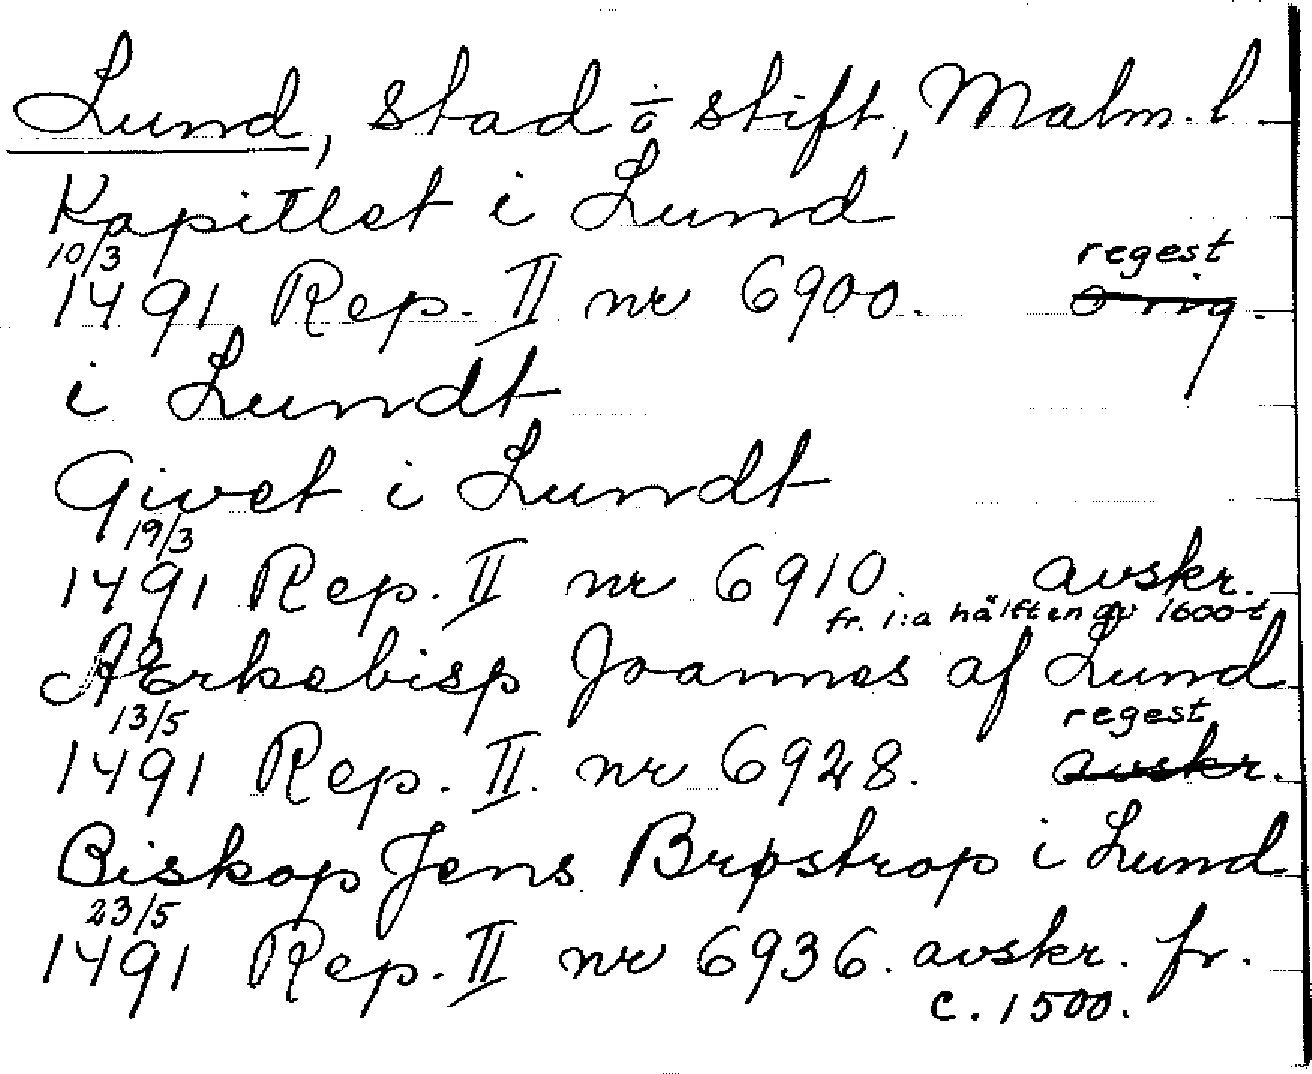 Lund, stad o stift, Malm. l
Kapitlet i Lund
10/3 regest
1491 Rep. II nr 6900. orig.
i Lundt
Givet i Lundt
19/3
1491 Rep. II nr 6910. avskr.
fr. 1:a hälften av 1600-t
Ærkebisp Joannes af Lund
13/5 regest
1491 Rep. II. nr 6928. avskr.
Biskop Jens Brøstrop i Lund
23/5
1491 Rep. II nr 6936. avskr. fr.
c. 1500.